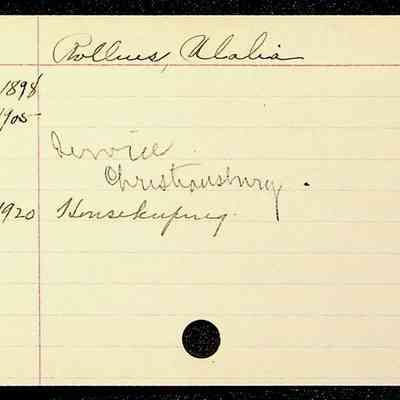 Rollins, Alalia
1898
1905
Service
Christiansburg.
1920 Housekeeping.